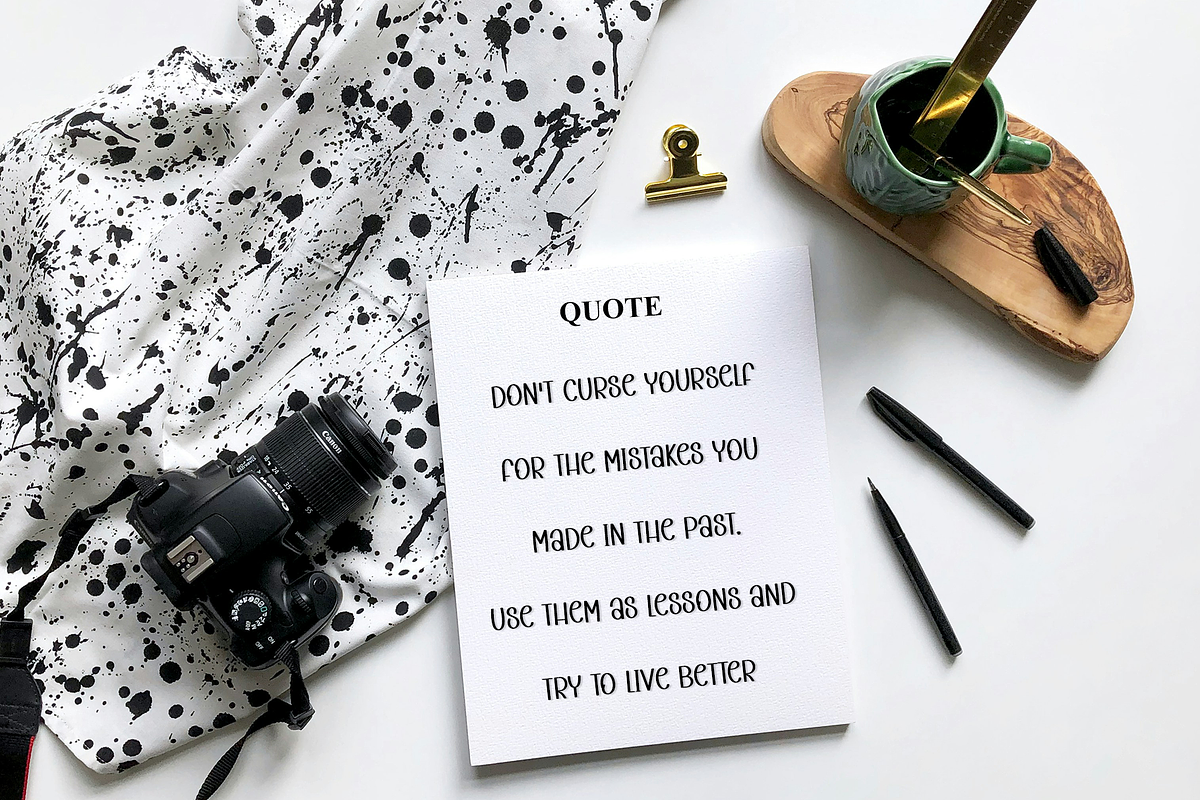 QUOTE
DON'T CURSE YOURSELF
FOR THE MISTAKES YOU
MADE IN THE PAST.
USE THEM AS LESSONS AND
TRY TO LIVE BETTER
Canon